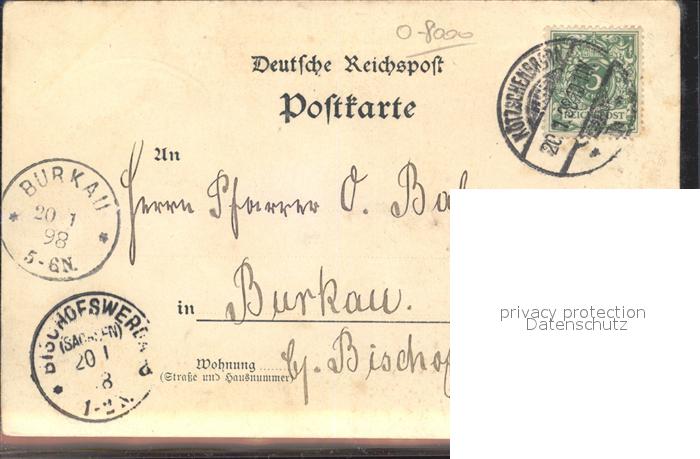 O-8000
Deutsche Reichspost
Postkarte
KÖTZSCHENBRODA
20
5
REICHSPOST
An
Herrn Pfarrer O.
BURKAU
20 1
98
5-6N.
in Burkau.
BISCHOFSWERDA
(SACHSEN)
20 1
8
1-2N.
Wohnung
(Straße und Hausnummer)
privacy protection
Datenschutz